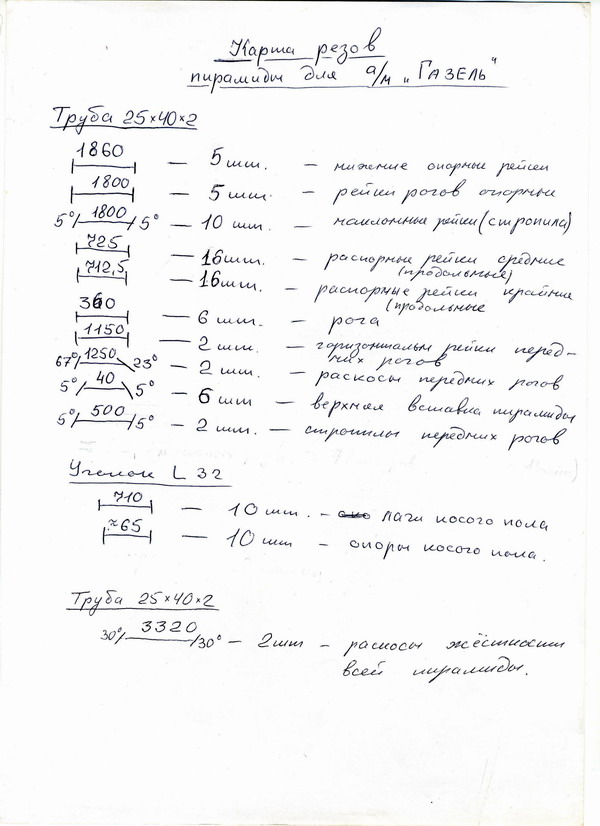 Карта резов
пирамиды для а/м "ГАЗЕЛЬ"
Труба 25×40×2
1860 — 5 шт. — нижние опорные рейки
1800 — 5 шт. — рейки рогов опорные
5° 1800 5° — 10 шт. — наклонные рейки (стропила)
725 — 16 шт. — распорные рейки средние
(продольные)
712,5 — 16 шт. — распорные рейки крайние
(продольные
360 — 6 шт — рога
1150 — 2 шт. — горизонтальн рейки перед-
них рогов
67° 1250 23° — 2 шт. — раскосы передних рогов
5° 40 5° — 6 шт — верхняя вставка пирамиды
5° 500 5° — 2 шт. — стропилы передних рогов
Уголок L 32
710 — 10 шт. — лаги косого пола
765 — 10 шт — опоры косого пола.
Труба 25×40×2
30° 3320 30° — 2 шт — раскосы жёсткости
всей пирамиды.